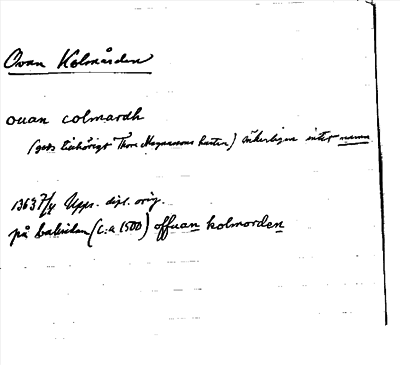 Ovan Kolmården
ouan colmardh
(gods tillhörigt Thore Magnussons) säkerligen intet namn
1363 7/4 Upps. dipl. orig.
på baksidan (c:a 1500) offuan kolmorden